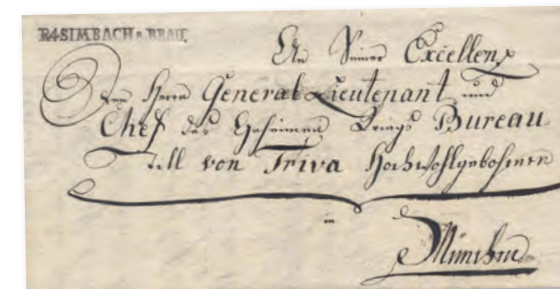 R4SIMBACH a BRAU.
An Seiner Excellenz
Den Herrn General-Lieutenant und
Chef des Geheimen Kriegs Bureau
von Triva Hochwohlgebohren
in
München